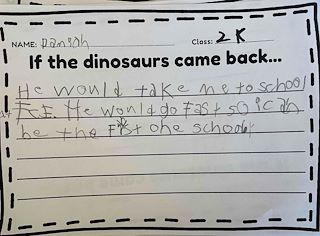 NAME: Danish Class: 2K
If the dinosaurs came back...
He would take me to school
He would go Fast so i can
be the First one school